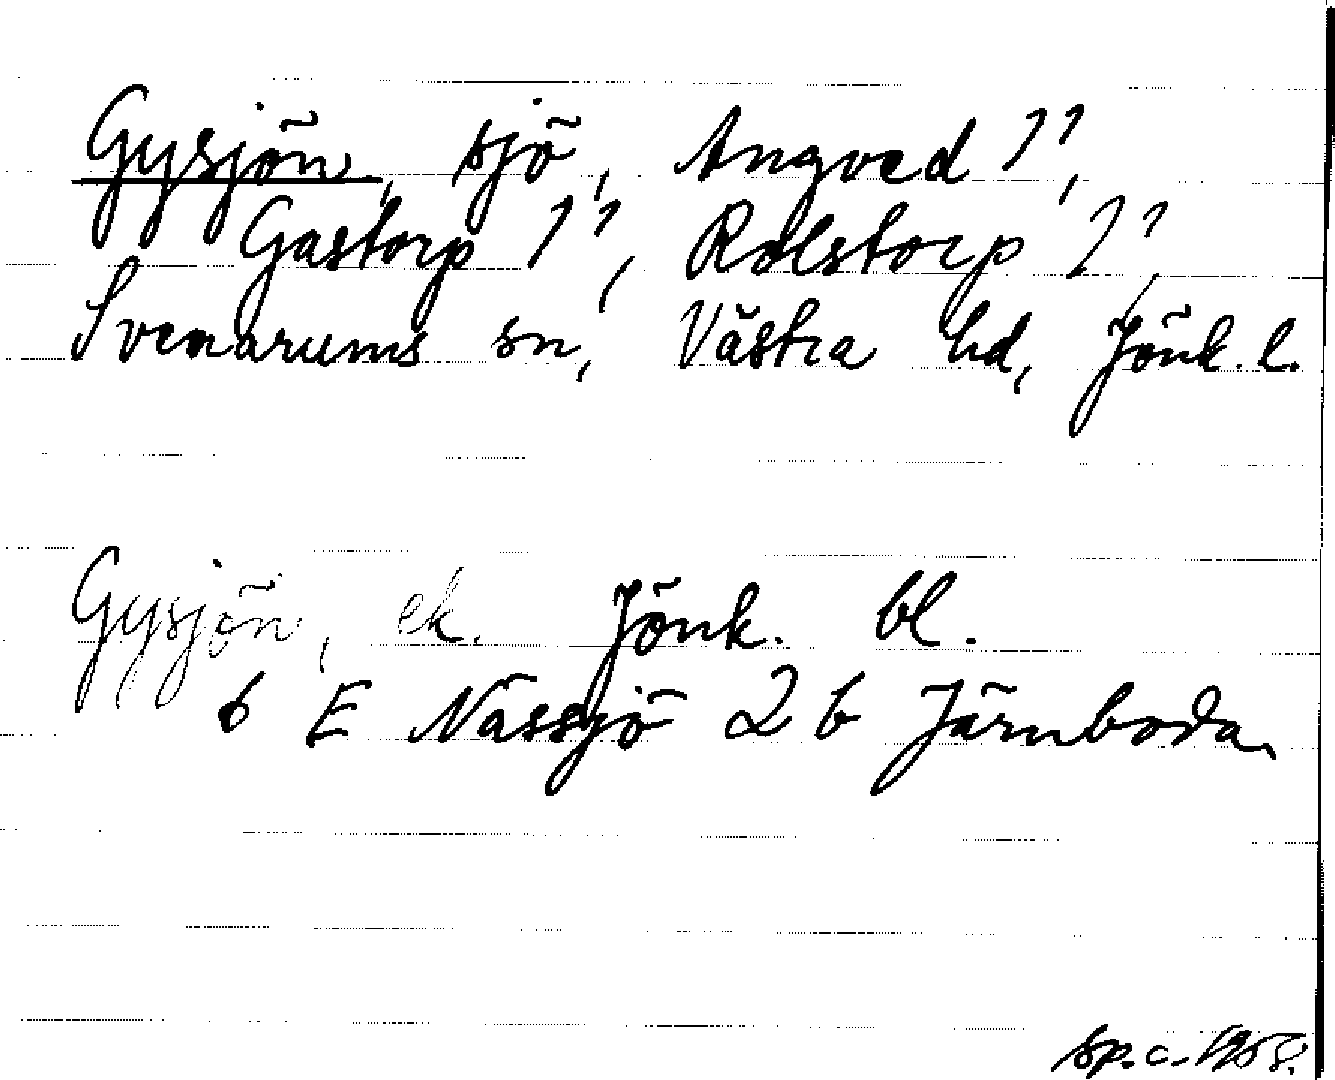 Gysjön, sjö, Angved 1¹,
Gastorp 1¹, Rolstorp 1¹,
Svenarums sn, Västra hd, Jönk. l.
Gysjön, ek. Jönk. bl.
6 E Nässjö 2 b Järnboda
sp. c. 1958.